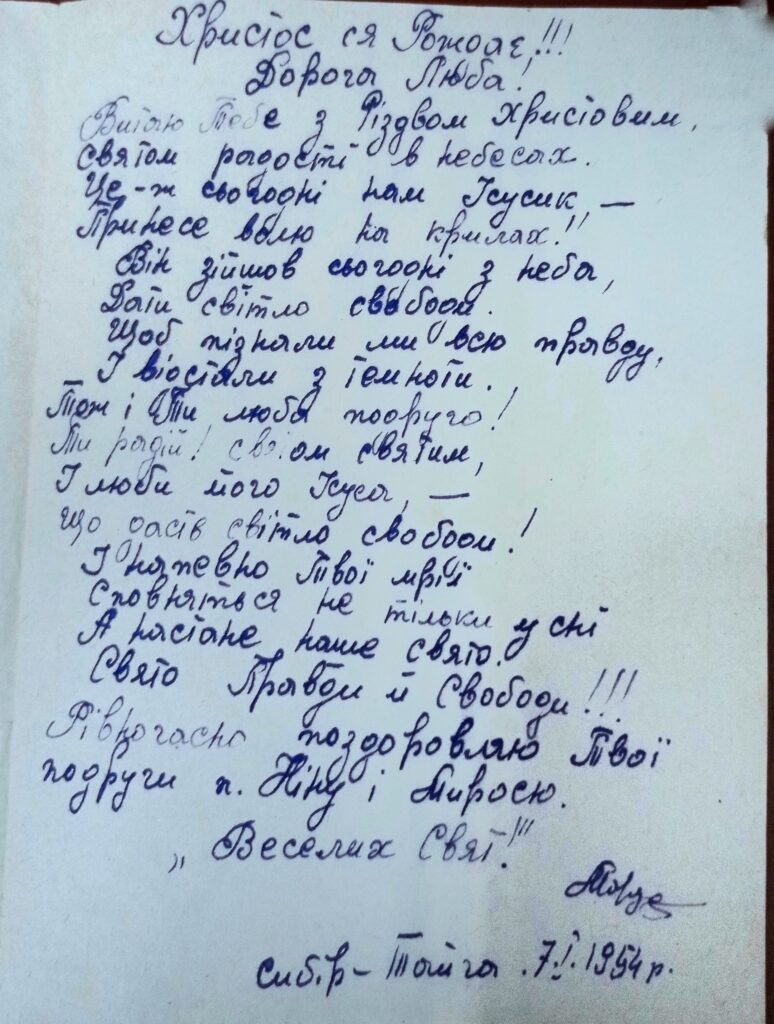 Христос ся Рождає,!!!
Дорога Люба!
Витаю Тебе з Різдвом Христовим,
святом радості в небесах.
Це-ж сьогодні нам Ісусик, —
Принесе волю на крилах!!
Він зійшов сьогодні з неба,
Дати світло свободи.
Щоб пізнали ми всю правду,
І відстали з темноти.
Тож і Ти люба подруго!
Ти радій! святом святим,
І люби його Ісуса, —
Що дасть світло свободи!
І напевно Твої мрії
Сповняться не тільки у сні
А настане наше свято.
Свято Правди й Свободи!!!
Рівночасно поздоровляю Твої
подруги п. Ніну і Миросю.
„Веселих Свят!"
Сибір – Тайга .7.I.1954 р.